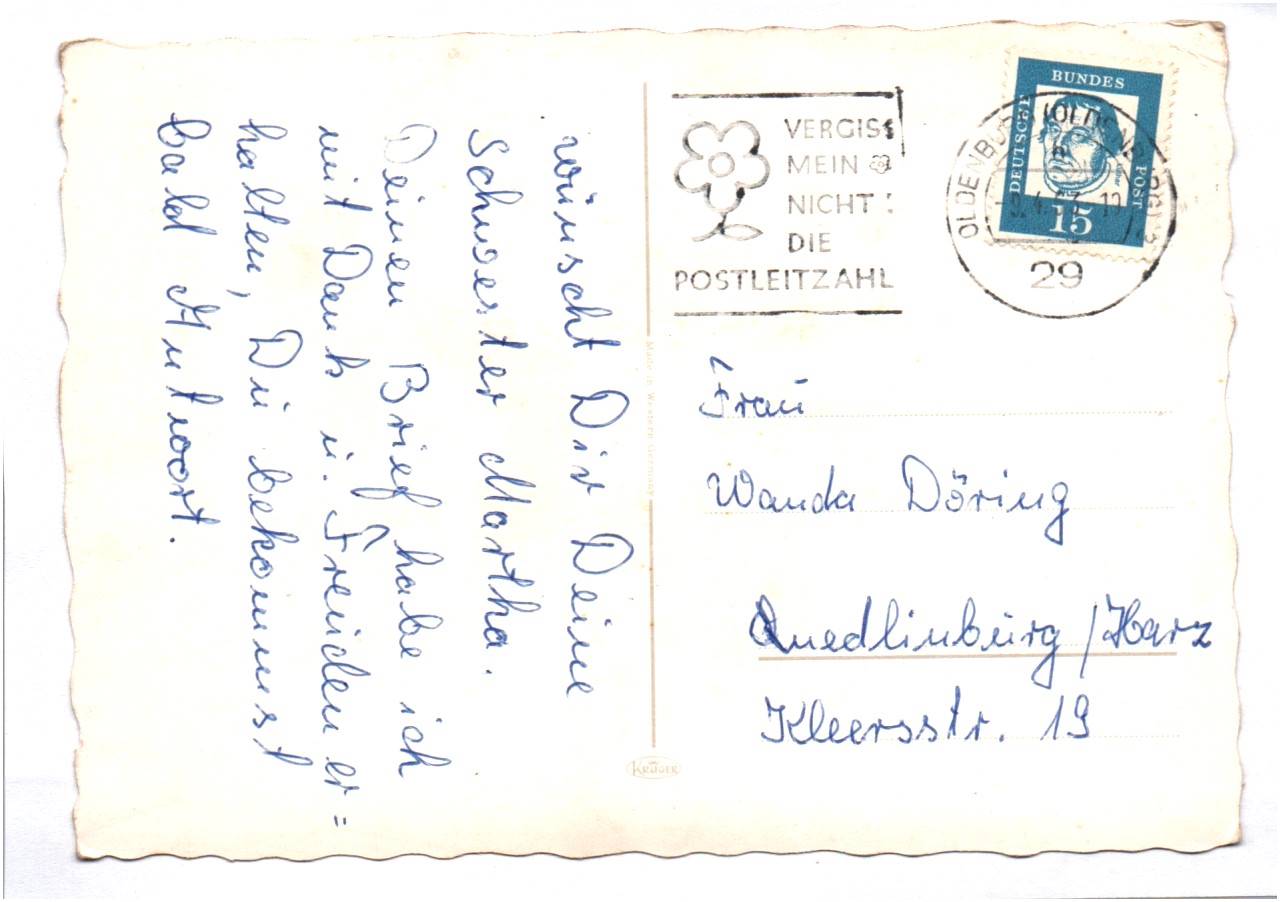 wünscht Dir Deine
Schwester Martha.
Deinen Brief habe ich
mit Dank u. Freuden er=
halten, Du bekommst
bald Antwort.
VERGISS
MEIN
NICHT
DIE
POSTLEITZAHL
DEUTSCHE
BUNDES
POST
15
OLDENBURG (OLDENBURG)
29
Made in Western Germany
KRÜGER
Frau
Wanda Döring
Quedlinburg /Harz
Kleersstr. 19